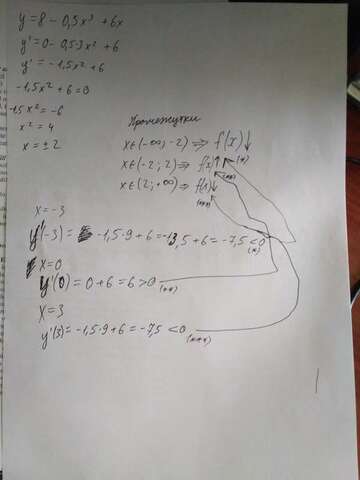 y = 8 - 0,5x³ + 6x
y' = 0 - 0,5·3x² + 6
y' = -1,5x² + 6
-1,5x² + 6 = 0
-1,5x² = -6
x² = 4
x = ±2
Промежутки
x∈(-∞; -2) ⇒ f(x)↓
(*)
x∈(-2; 2) ⇒ f(x)↑
(**)
x∈(2; +∞) ⇒ f(x)↓
(***)
x = -3
y'(-3) = -1,5·9 + 6 = -13,5 + 6 = -7,5 < 0
(*)
x = 0
y'(0) = 0 + 6 = 6 > 0
(**)
x = 3
y'(3) = -1,5·9 + 6 = -7,5 < 0
(***)